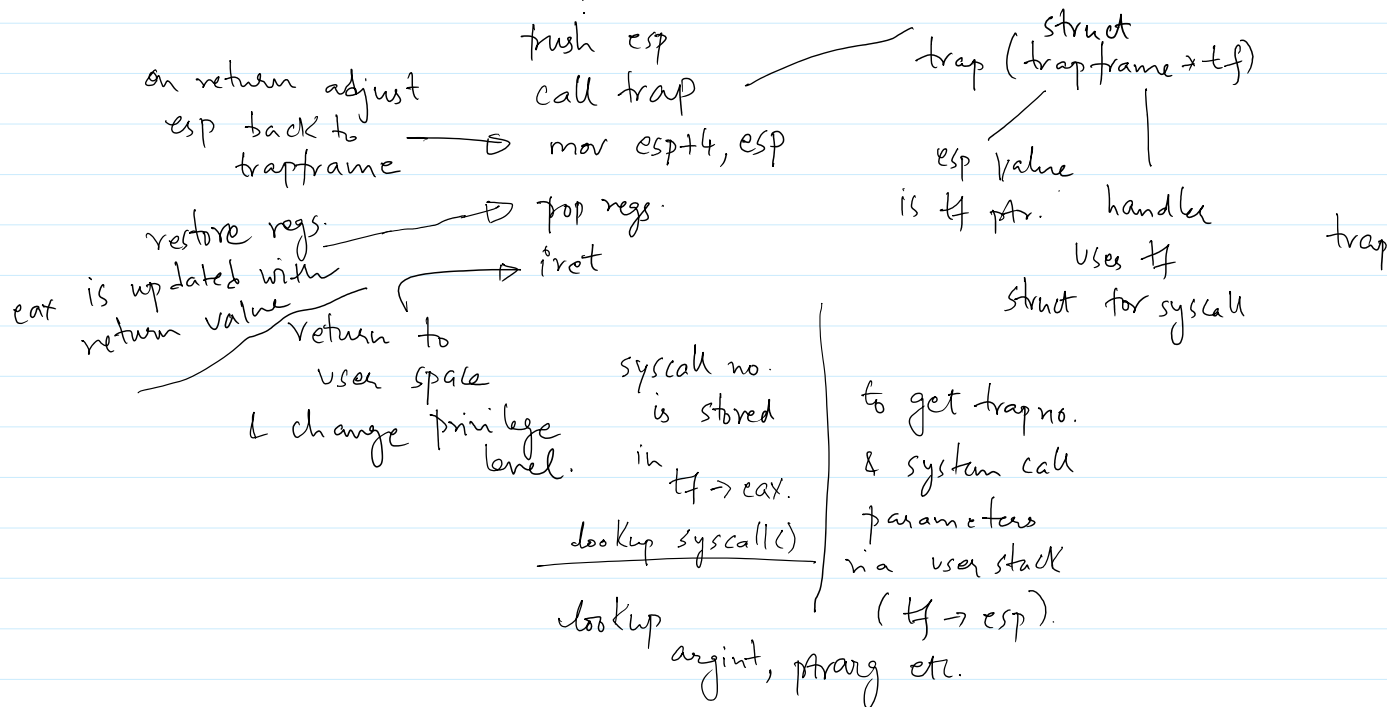 push esp
call trap
mov esp+4, esp
pop regs.
iret
on return adjust
esp back to
trapframe
restore regs.
eax is updated with
return value
return to
user space
& change privilege
level.
struct
trap (trapframe * tf)
esp value
is tf ptr.
handler
uses tf
struct for syscall
trap
syscall no.
is stored
in
tf → eax.
lookup syscall()
lookup
argint, ptrarg etc.
to get trap no.
& system call
parameters
via user stack
(tf → esp).